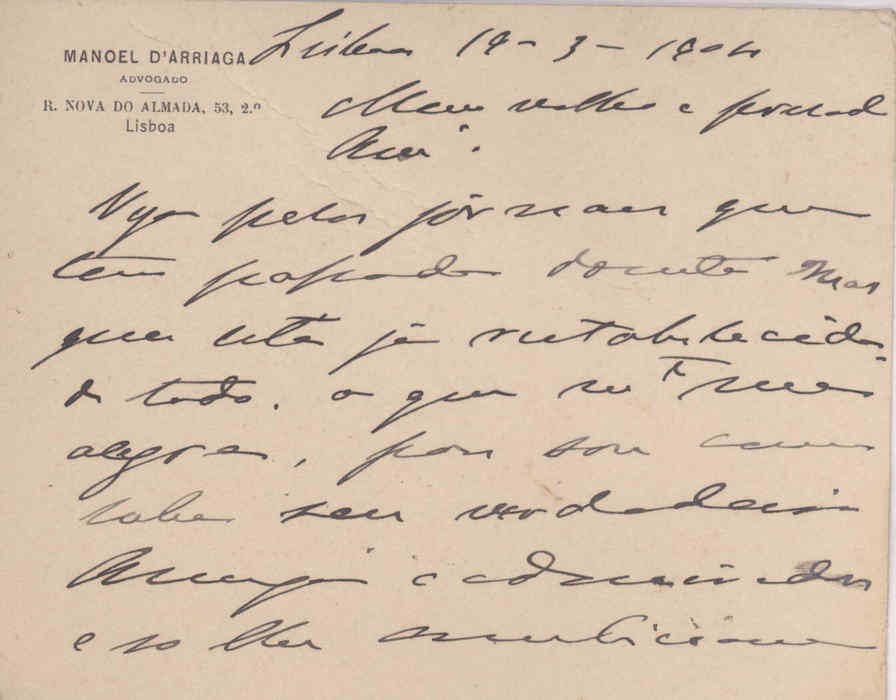 MANOEL D'ARRIAGA
ADVOGADO
R. NOVA DO ALMADA, 53, 2.º
Lisboa
Lisboa 19-3-1904
Meu velho e presado
Am.º
Vejo pelos jornaes que
tem passado doente mas
que está já restabelecido
de todo. o que m.to me
alegra, pois sou como
sabe seu verdadeiro
Amigo e admirador
e só lhe ambiciono